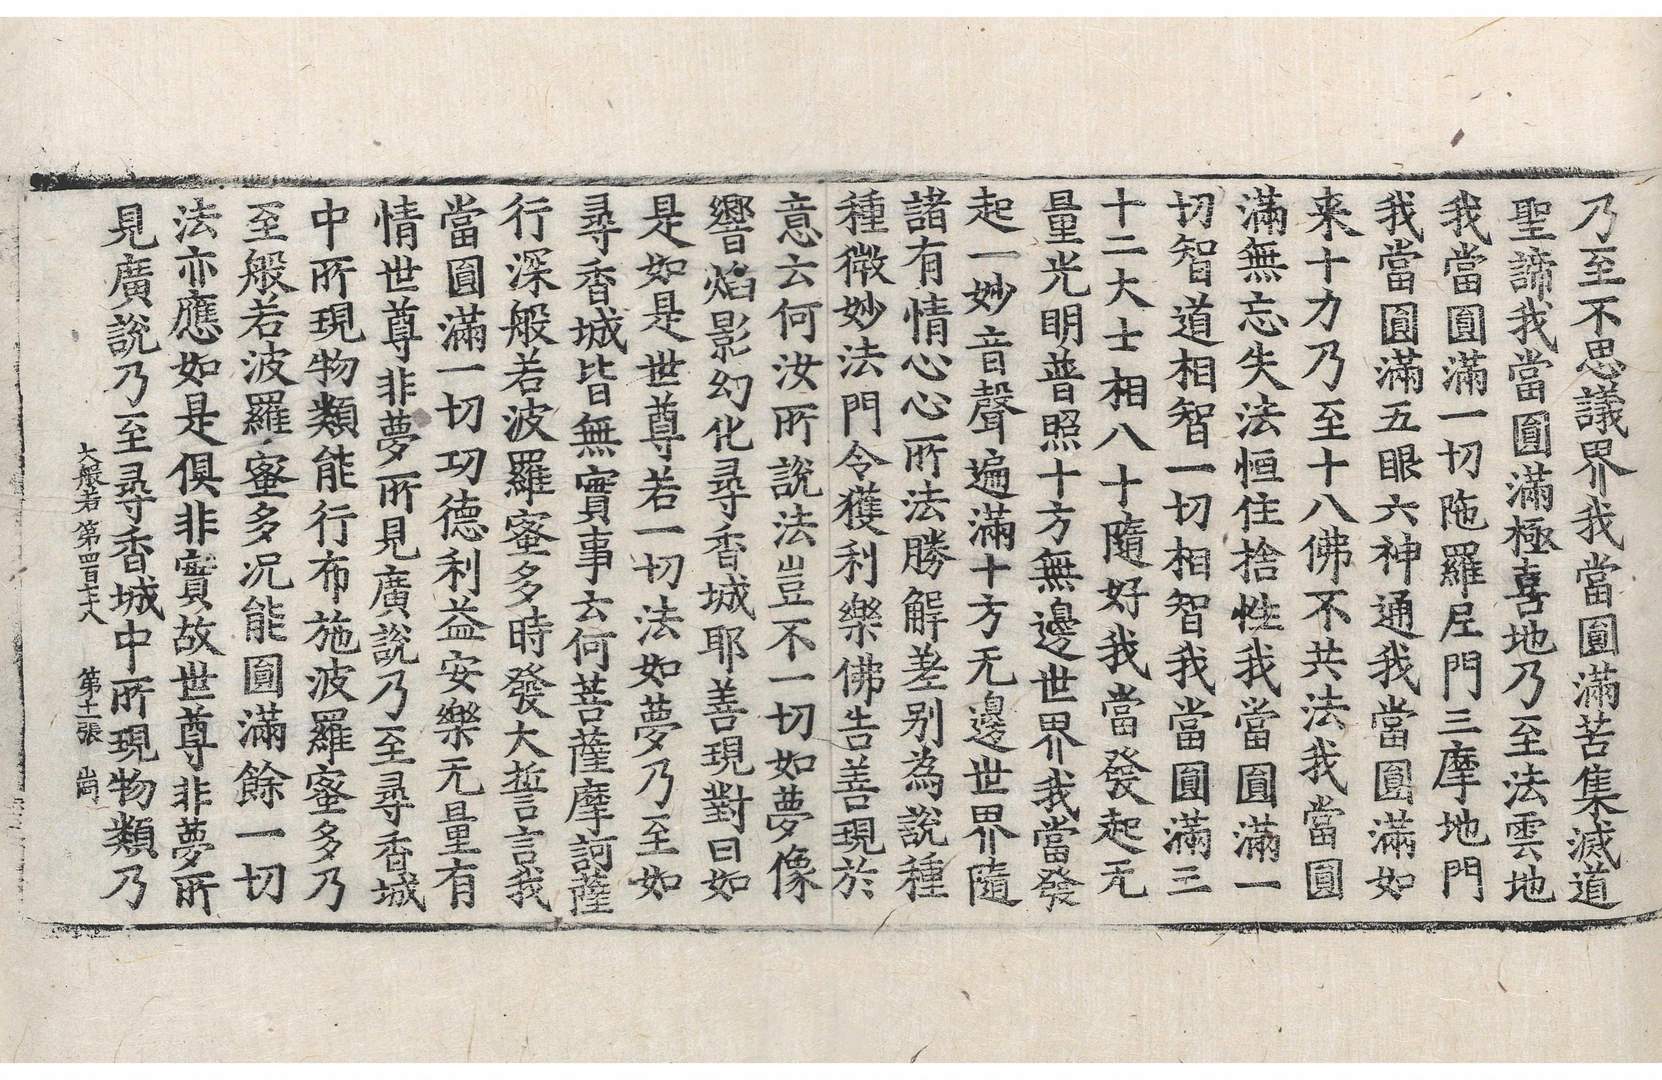 乃至不思議界我當圓滿苦集滅道
聖諦我當圓滿極喜地乃至法雲地
我當圓滿一切陁羅尼門三摩地門
我當圓滿五眼六神通我當圓滿如
来十力乃至十八佛不共法我當圓
滿無忘失法恒住捨性我當圓滿一
切智道相智一切相智我當圓滿三
十二大士相八十隨好我當發起无
量光明普照十方無邊世界我當發
起一妙音聲遍滿十方无邊世界隨
諸有情心心所法勝解差别為說種
種微妙法門令獲利樂佛告善現於
意云何汝所說法豈不一切如夢像
響焰影幻化尋香城耶善現對曰如
是如是世尊若一切法如夢乃至如
尋香城皆無實事云何菩薩摩訶薩
行深般若波羅蜜多時發大誓言我
當圓滿一切功德利益安樂无量有
情世尊非夢所見廣說乃至尋香城
中所現物類能行布施波羅蜜多乃
至般若波羅蜜多况能圓滿餘一切
法亦應如是俱非實故世尊非夢所
見廣說乃至尋香城中所現物類乃
大般若第四百七十八 第十二張 崗